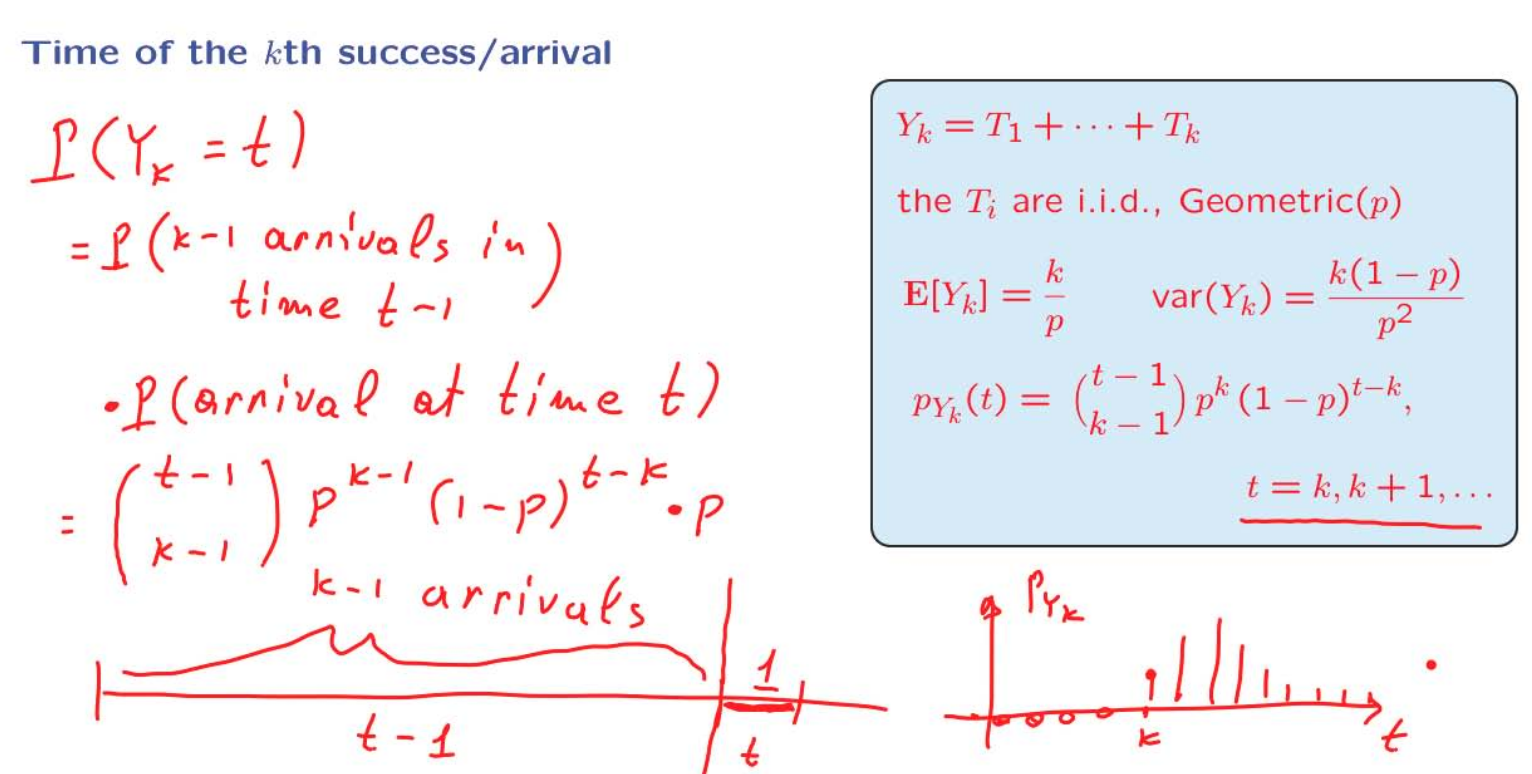 Time of the kth success/arrival
P(Y_k = t)
= P(k-1 arrivals in
time t-1)
• P(arrival at time t)
= \binom{t-1}{k-1} p^{k-1} (1-p)^{t-k} • p
k-1 arrivals
1
t-1
t
Y_k = T_1 + ⋯ + T_k
the T_i are i.i.d., Geometric(p)
E[Y_k] = \frac{k}{p} var(Y_k) = \frac{k(1-p)}{p^2}
p_{Y_k}(t) = \binom{t-1}{k-1} p^k (1-p)^{t-k},
t = k, k+1, …
P_{Y_k}
k
t